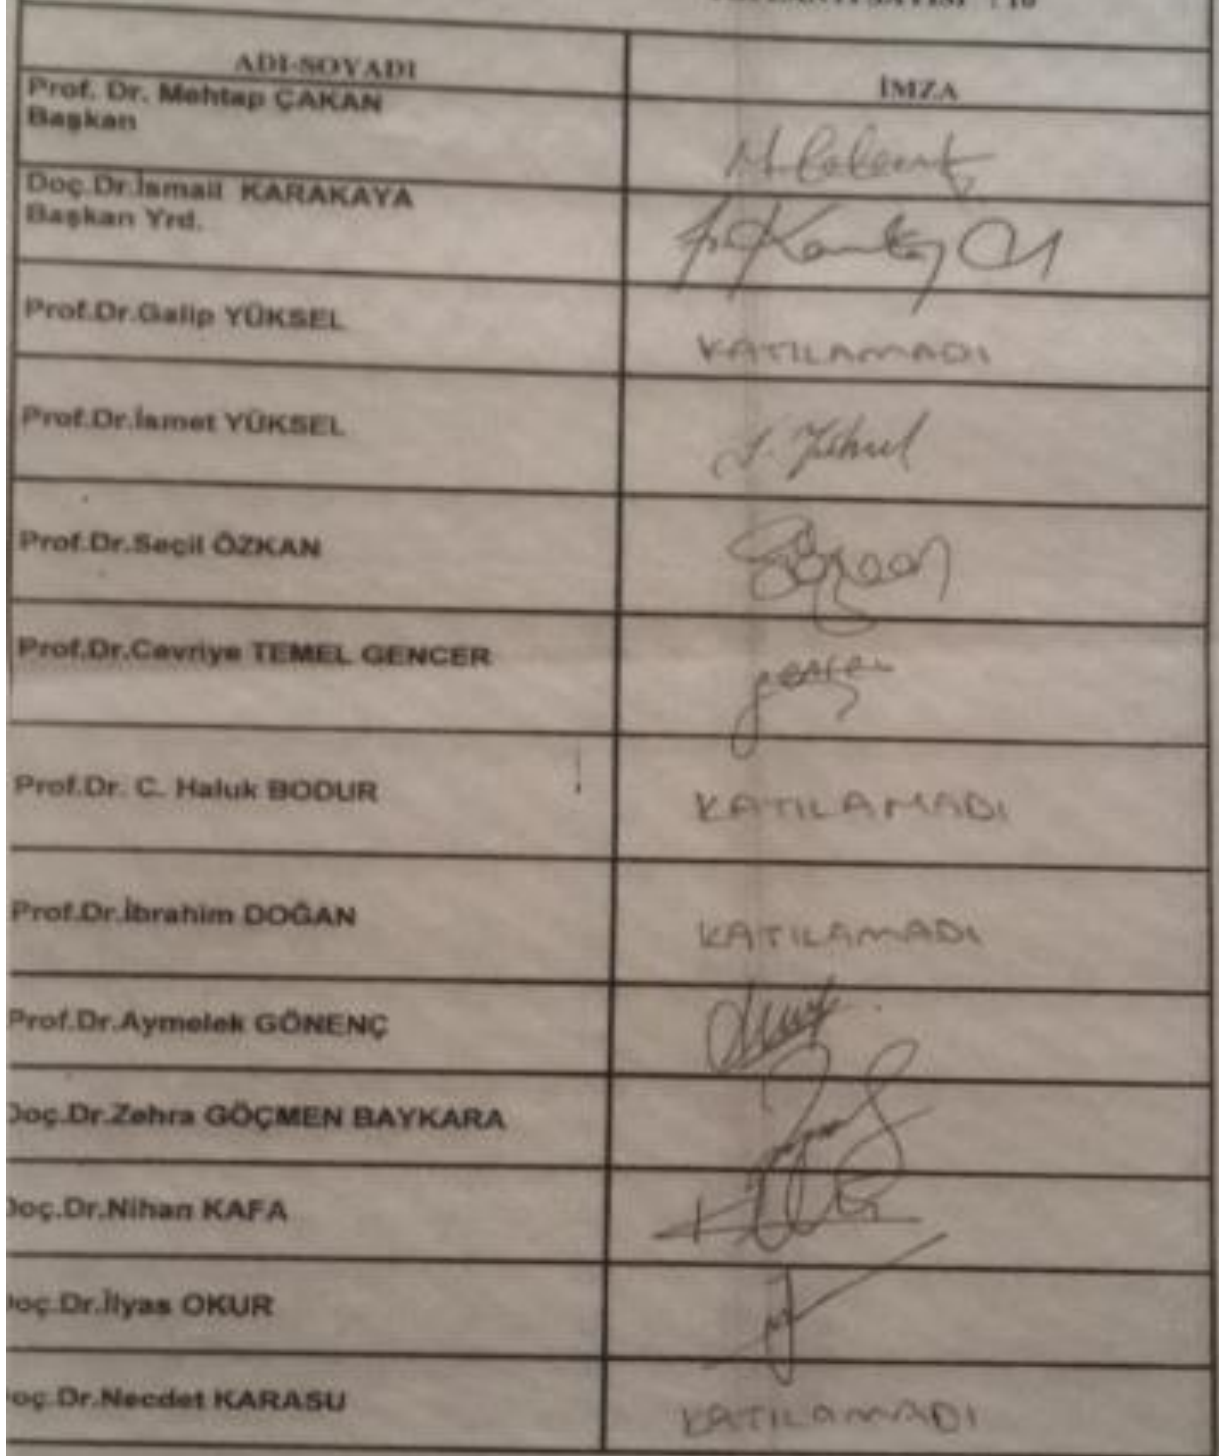 : 10
ADI-SOYADI
İMZA
Prof. Dr. Mehtap ÇAKAN
Başkan
Doç.Dr.İsmail KARAKAYA
Başkan Yrd.
Prof.Dr.Galip YÜKSEL
KATILAMADI
Prof.Dr.İsmet YÜKSEL
Prof.Dr.Seçil ÖZKAN
Prof.Dr.Cevriye TEMEL GENCER
Prof.Dr. C. Haluk BODUR
KATILAMADI
Prof.Dr.İbrahim DOĞAN
KATILAMADI
Prof.Dr.Aymelek GÖNENÇ
Doç.Dr.Zehra GÖÇMEN BAYKARA
Doç.Dr.Nihan KAFA
oç.Dr.İlyas OKUR
oç.Dr.Necdet KARASU
KATILAMADI